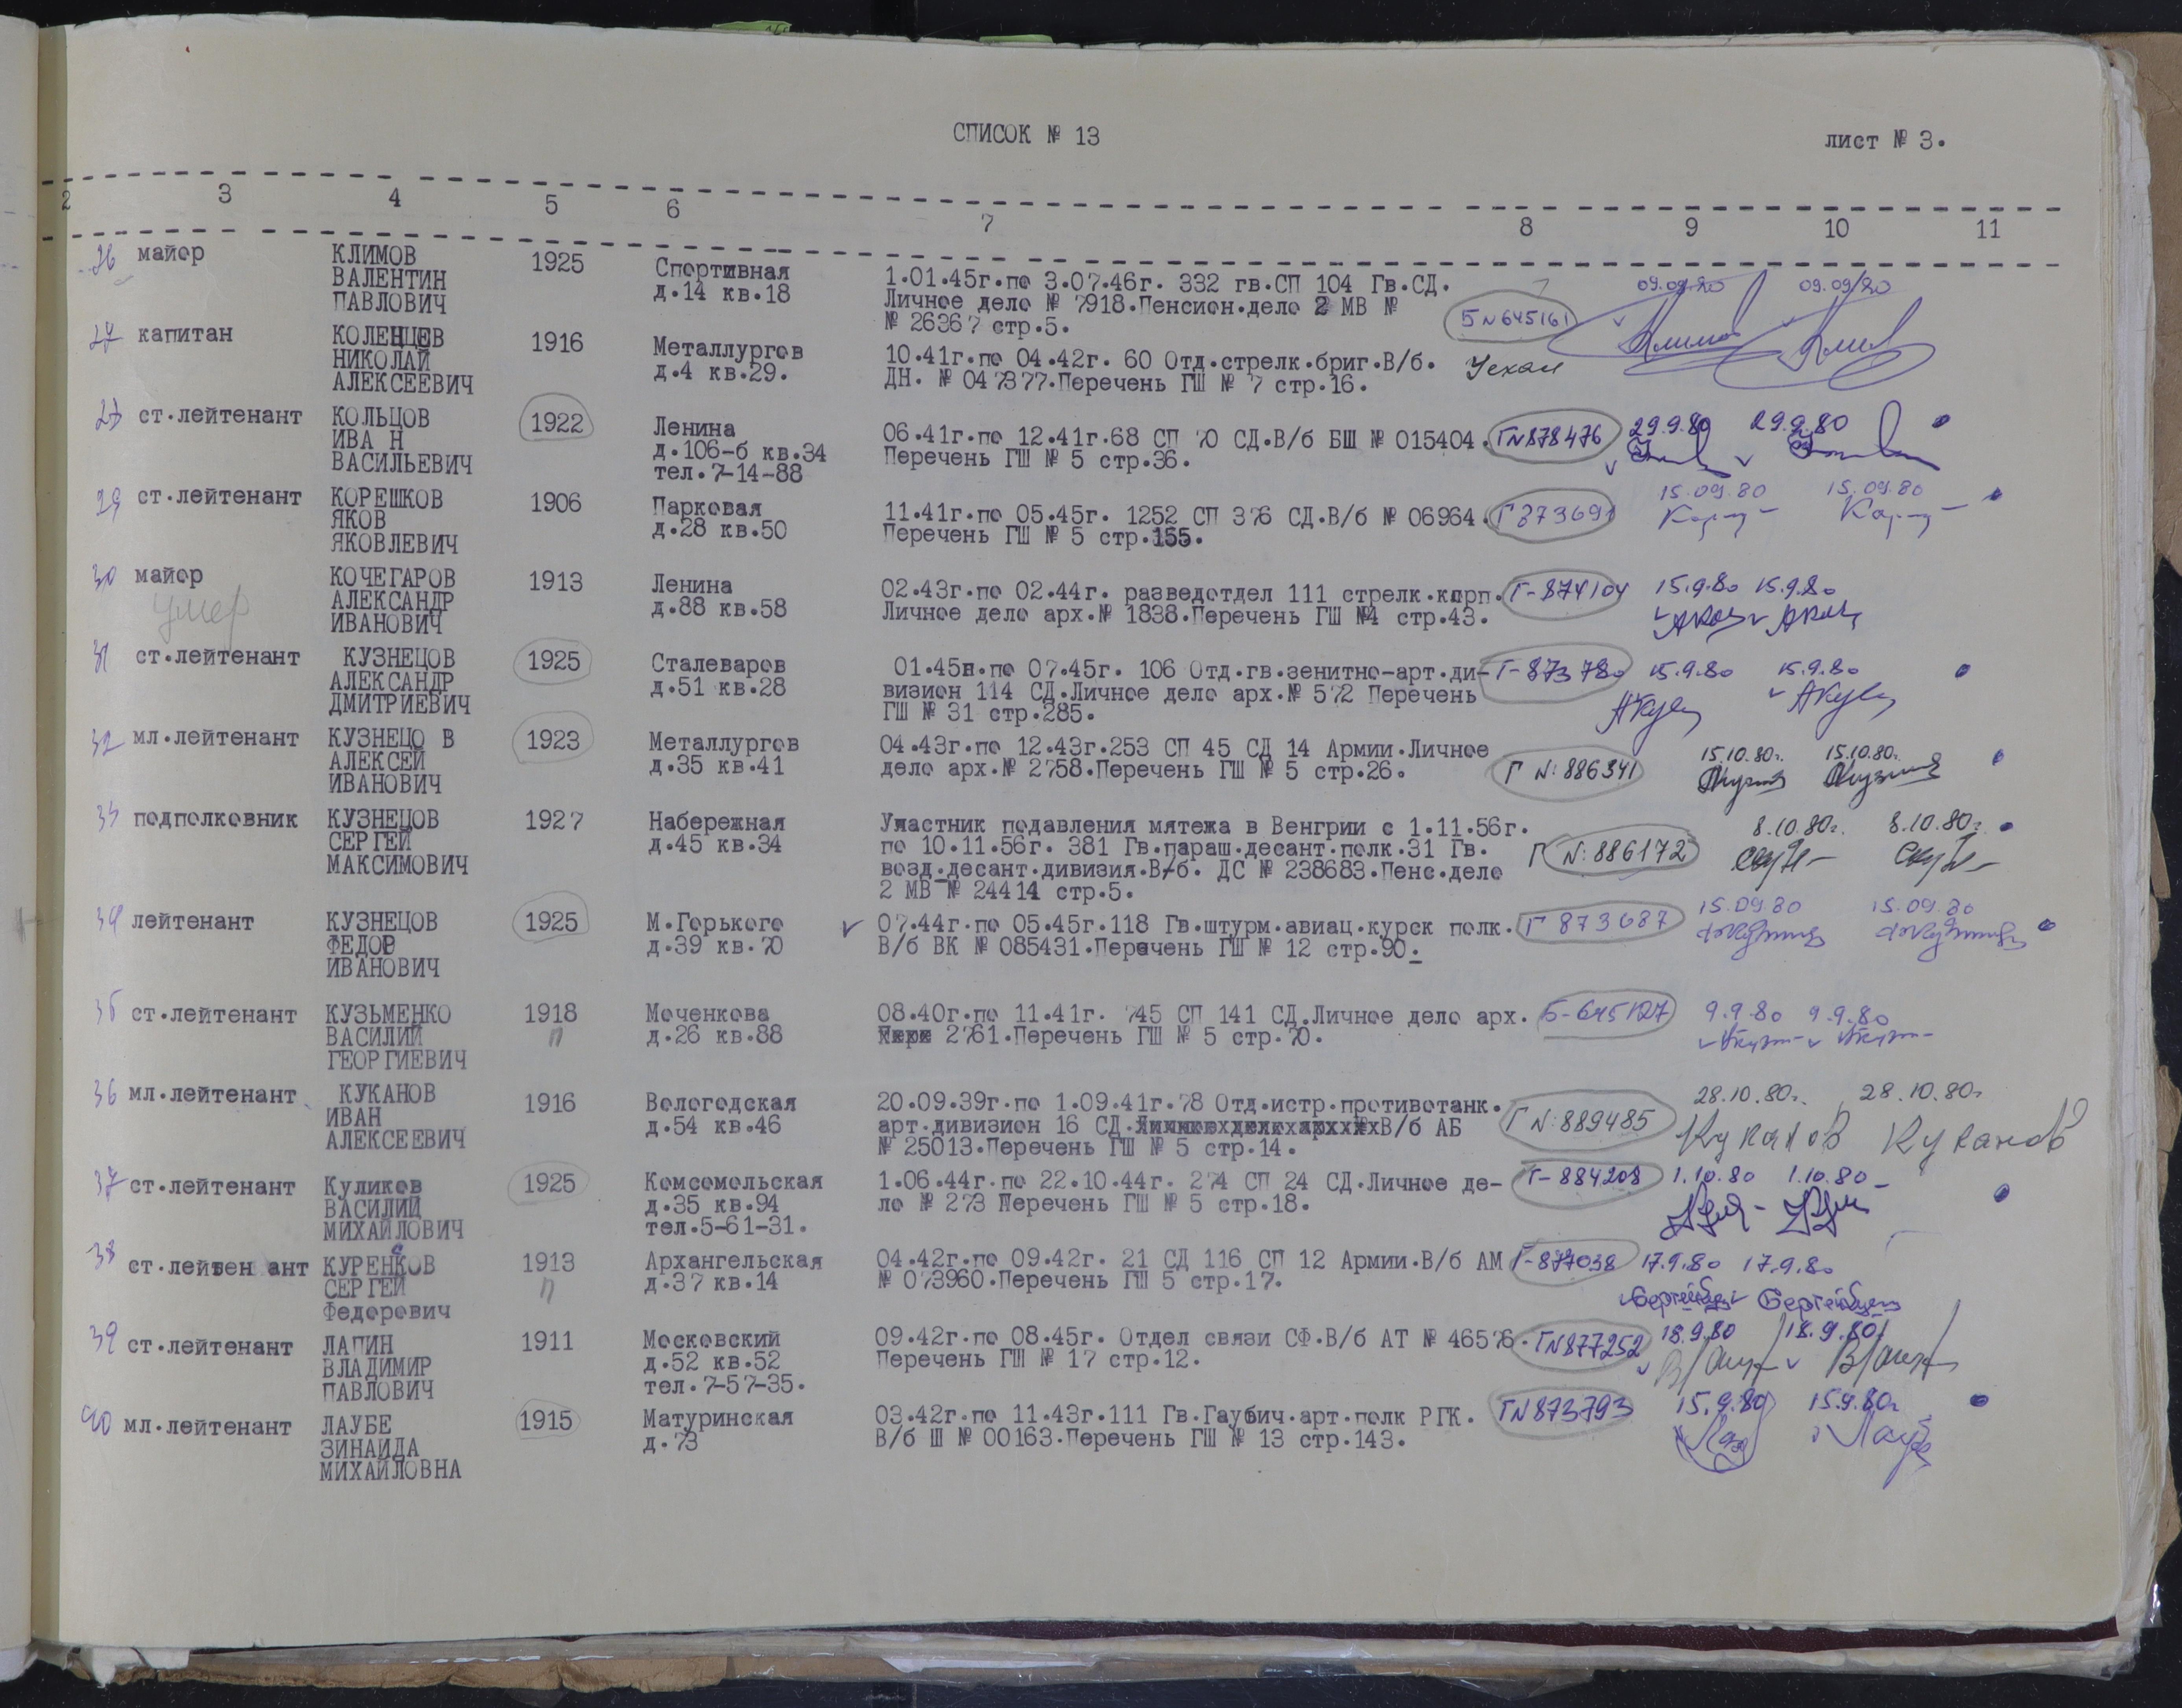 СПИСОК № 13
лист № 3.
2 3 4 5 6 7 8 9 10 11
26 майор КЛИМОВ 1925 Спортивная 1.01.45г.по 3.07.46г. 332 гв.СП 104 Гв.СД. 09.09.80 09.09.80
ВАЛЕНТИН д.14 кв.18 Личное дело № 7918.Пенсион.дело 2 МВ № Б N 645161
ПАВЛОВИЧ № 26367 стр.5.
27 капитан КОЛЕНЦЕВ 1916 Металлургов 10.41г.по 04.42г. 60 Отд.стрелк.бриг.В/б. Уехал
НИКОЛАЙ д.4 кв.29. ДН. № 047377.Перечень ГШ № 7 стр.16.
АЛЕКСЕЕВИЧ
28 ст.лейтенант КОЛЬЦОВ 1922 Ленина 06.41г.по 12.41г.68 СП 70 СД.В/б БШ № 015404. ГN878476 29.9.80 29.9.80
ИВА Н д.106-б кв.34 Перечень ГШ № 5 стр.36.
ВАСИЛЬЕВИЧ тел.7-14-88
29 ст.лейтенант КОРЕШКОВ 1906 Парковая 11.41г.по 05.45г. 1252 СП 376 СД.В/б № 06964. Г 873691 15.09.80 15.09.80
ЯКОВ д.28 кв.50 Перечень ГШ № 5 стр.155.
ЯКОВЛЕВИЧ
30 майор КОЧЕГАРОВ 1913 Ленина 02.43г.по 02.44г. разведотдел 111 стрелк.корп. Г-874104 15.9.80 15.9.80
умер АЛЕКСАНДР д.88 кв.58 Личное дело арх.№ 1838.Перечень ГШ №4 стр.43.
ИВАНОВИЧ
31 ст.лейтенант КУЗНЕЦОВ 1925 Сталеваров 01.45н.по 07.45г. 106 Отд.гв.зенитно-арт.ди- Г-873780 15.9.80 15.9.80
АЛЕКСАНДР д.51 кв.28 визион 114 СД.Личное дело арх.№ 572 Перечень
ДМИТРИЕВИЧ ГШ № 31 стр.285.
32 мл.лейтенант КУЗНЕЦО В 1923 Металлургов 04.43г.по 12.43г.253 СП 45 СД 14 Армии.Личное 15.10.80г. 15.10.80г.
АЛЕКСЕЙ д.35 кв.41 дело арх.№ 2758.Перечень ГШ № 5 стр.26. Г N: 886341
ИВАНОВИЧ
33 подполковник КУЗНЕЦОВ 1927 Набережная Участник подавления мятежа в Венгрии с 1.11.56г. 8.10.80г. 8.10.80г.
СЕРГЕЙ д.45 кв.34 по 10.11.56г. 381 Гв.параш.десант.полк.31 Гв. Г N: 886172
МАКСИМОВИЧ возд.десант.дивизия.В/б. ДС № 238683.Пенс.дело
2 МВ № 24414 стр.5.
34 лейтенант КУЗНЕЦОВ 1925 М.Горького 07.44г.по 05.45г.118 Гв.штурм.авиац.курск полк. Г 873687 15.09.80 15.09.80
ФЕДОР д.39 кв.70 В/б ВК № 085431.Перечень ГШ № 12 стр.90.
ИВАНОВИЧ
35 ст.лейтенант КУЗЬМЕНКО 1918 Моченкова 08.40г.по 11.41г. 745 СП 141 СД.Личное дело арх. Б-645127 9.9.80 9.9.80
ВАСИЛИЙ п д.26 кв.88 2761.Перечень ГШ № 5 стр.70.
ГЕОРГИЕВИЧ
36 мл.лейтенант КУКАНОВ 1916 Вологодская 20.09.39г.по 1.09.41г.78 Отд.истр.противотанк. Г N: 889485 28.10.80г. 28.10.80г
ИВАН д.54 кв.46 арт.дивизион 16 СД. В/б АБ Куканов Куканов
АЛЕКСЕЕВИЧ № 25013.Перечень ГШ № 5 стр.14.
37 ст.лейтенант Куликов 1925 Комсомольская 1.06.44г.по 22.10.44г. 274 СП 24 СД.Личное де- Г-884208 1.10.80 1.10.80
ВАСИЛИЙ д.35 кв.94 ло № 273 Перечень ГШ № 5 стр.18.
МИХАЙЛОВИЧ тел.5-61-31.
38 ст.лейтен ант КУРЕНКОВ 1913 Архангельская 04.42г.по 09.42г. 21 СД 116 СП 12 Армии.В/б АМ Г-877038 17.9.80 17.9.80
СЕРГЕЙ п д.37 кв.14 № 073960.Перечень ГШ 5 стр.17.
Федорович
39 ст.лейтенант ЛАПИН 1911 Московский 09.42г.по 08.45г. Отдел связи СФ.В/б АТ № 46576. ГN877252 18.9.80 18.9.80
ВЛАДИМИР д.52 кв.52 Перечень ГШ № 17 стр.12.
ПАВЛОВИЧ тел.7-57-35.
40 мл.лейтенант ЛАУБЕ 1915 Матуринская 03.42г.по 11.43г.111 Гв.Гаубич.арт.полк РГК. ГN873793 15.9.80 15.9.80г
ЗИНАИДА д.73 В/б Ш № 00163.Перечень ГШ № 13 стр.143.
МИХАЙЛОВНА